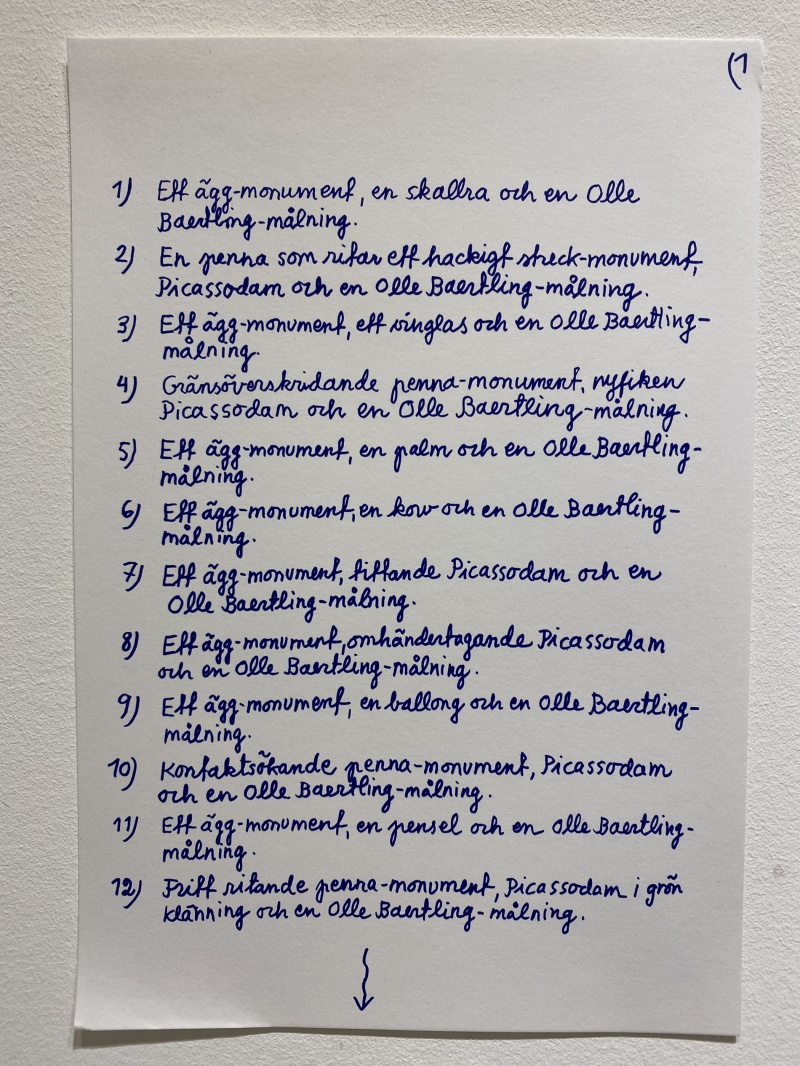 (1
1) Ett ägg-monument, en skallra och en Olle
Baertling-målning.
2) En penna som ritar ett hackigt streck-monument,
Picassodam och en Olle Baertling-målning.
3) Ett ägg-monument, ett vinglas och en Olle Baertling-
målning.
4) Gränsöverskridande penna-monument, nyfiken
Picassodam och en Olle Baertling-målning.
5) Ett ägg-monument, en palm och en Olle Baertling-
målning.
6) Ett ägg-monument, en korv och en Olle Baertling-
målning.
7) Ett ägg-monument, tittande Picassodam och en
Olle Baertling-målning.
8) Ett ägg-monument, omhändertagande Picassodam
och en Olle Baertling-målning.
9) Ett ägg-monument, en ballong och en Olle Baertling-
målning.
10) Kontaktsökande penna-monument, Picassodam
och en Olle Baertling-målning.
11) Ett ägg-monument, en pensel och en Olle Baertling-
målning.
12) Fritt ritande penna-monument, Picassodam i grön
klänning och en Olle Baertling-målning.